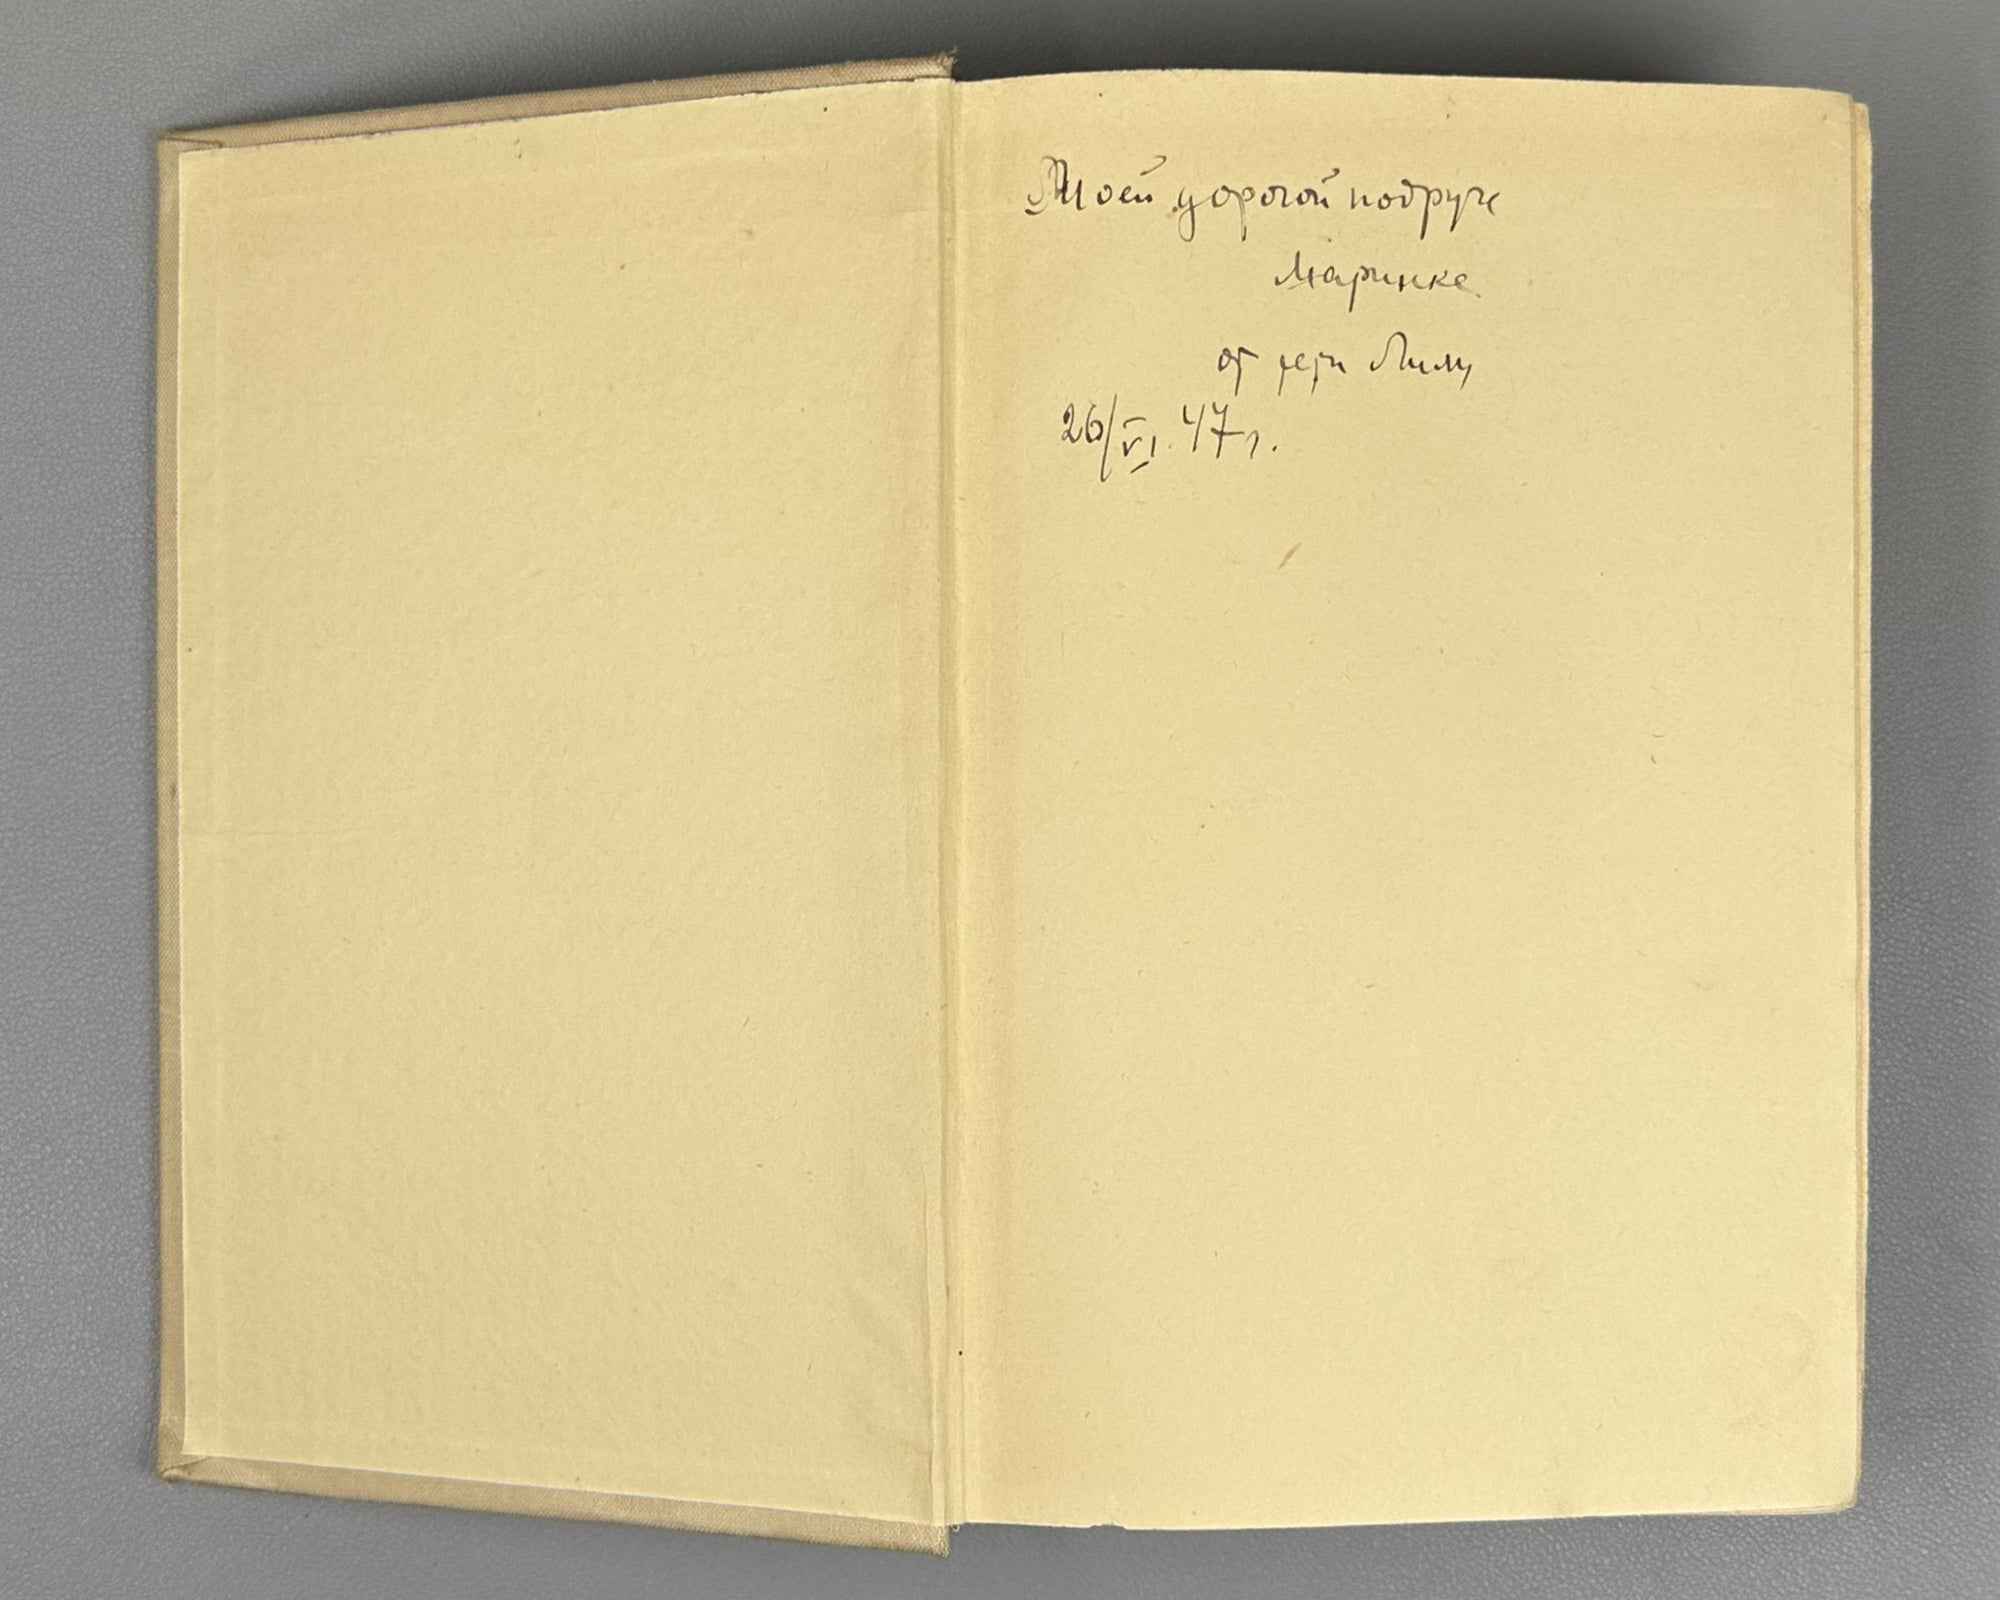 Моей дорогой подруге
Маринке
от тети Лили
26/VI.47г.